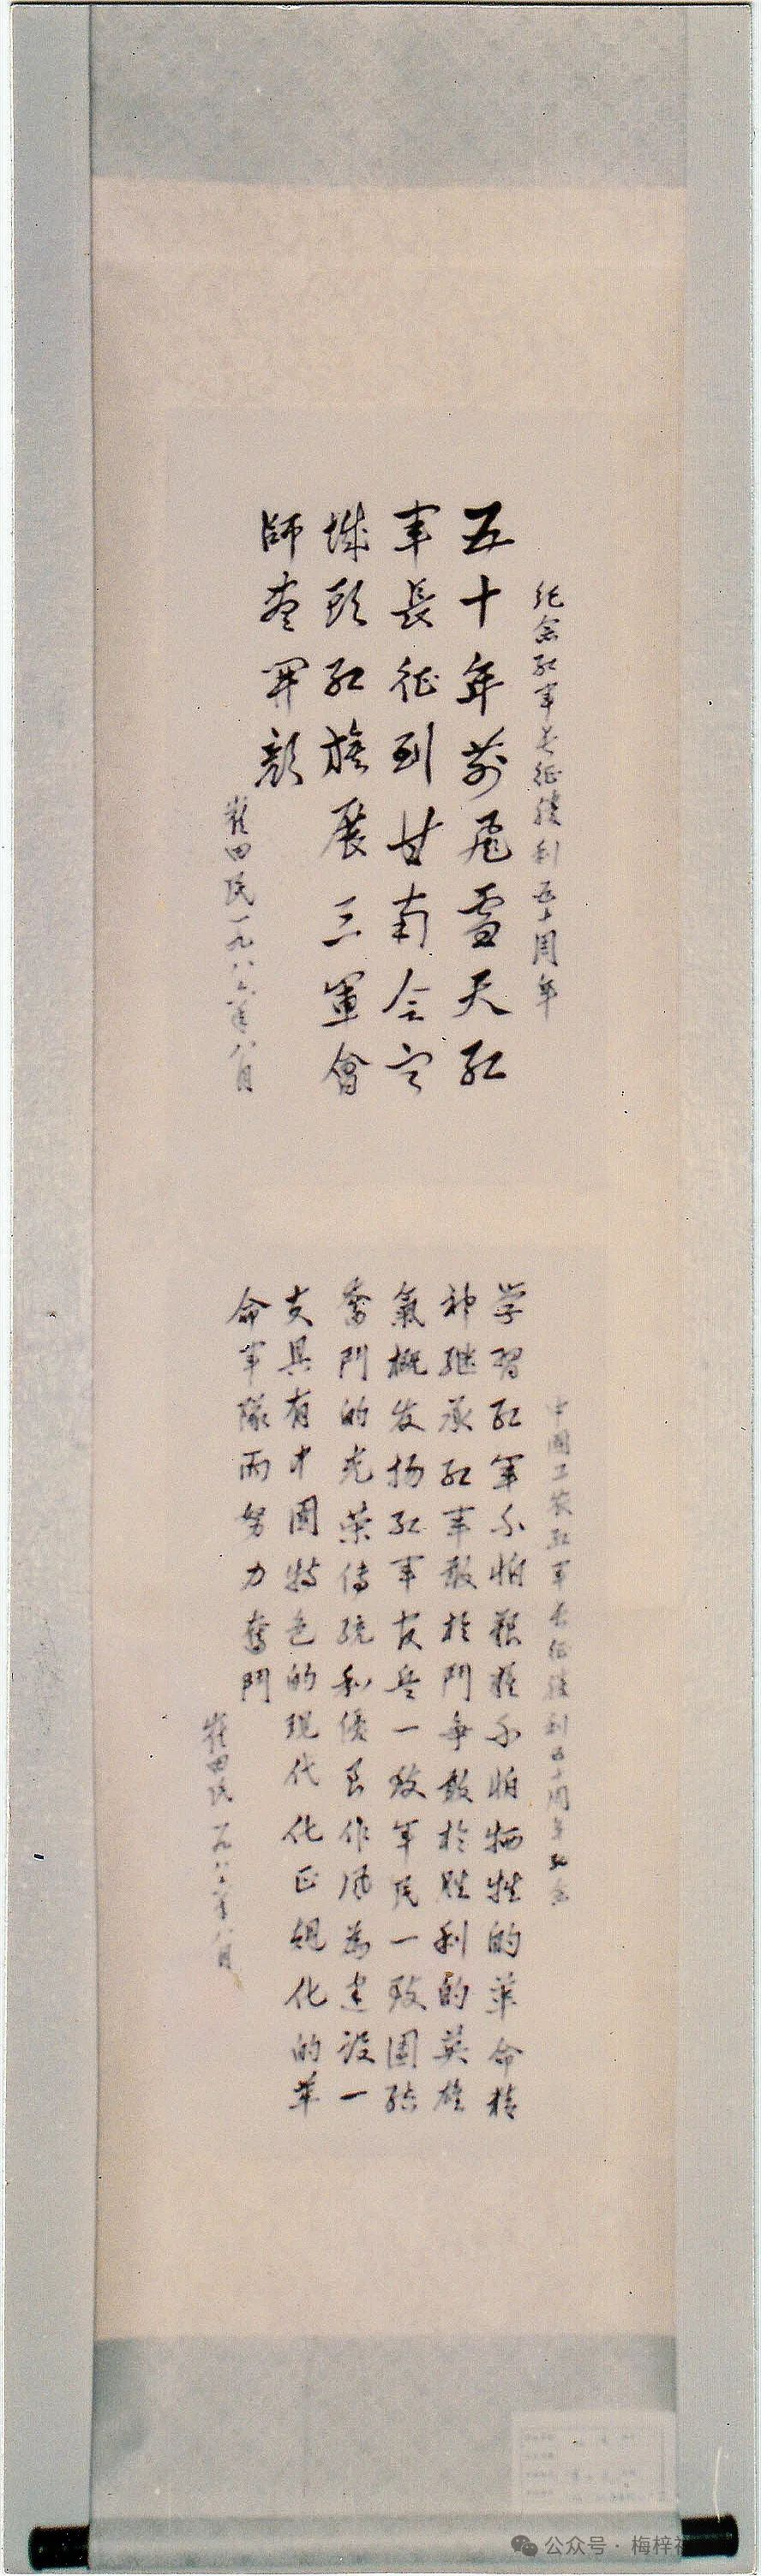 纪念红军长征胜利五十周年
五十年前飞雪天红
军长征到甘南会宁
城头红旗展三军會
師尽开颜
崔田民一九八六年八月
中國工农红军长征胜利五十周年纪念
学習红军不怕艰难不怕牺牲的革命精
神继承红军敢於鬥争敢於胜利的英雄
氣概发扬红军官兵一致军民一致团结
奮鬥的光荣传统和优良作风為建设一
支具有中国特色的现代化正规化的革
命军隊而努力奮鬥
崔田民一九八六年八月
公众号·梅梓祥